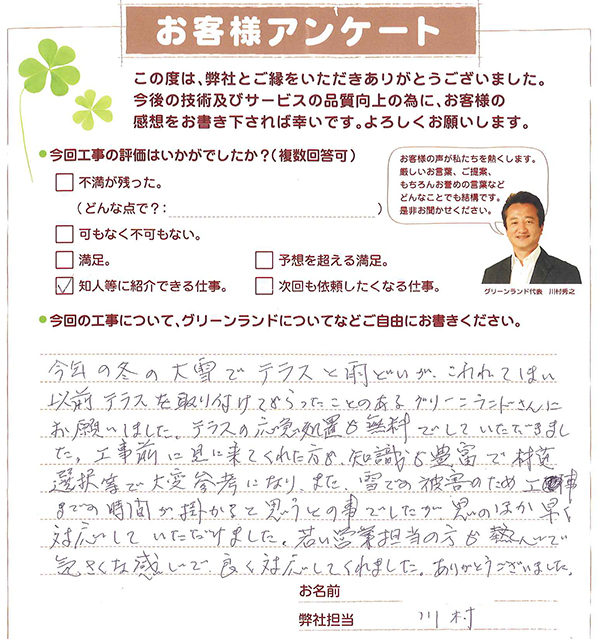 お客様アンケート
この度は、弊社とご縁をいただきありがとうございました。
今後の技術及びサービスの品質向上の為に、お客様の
感想をお書き下されば幸いです。よろしくお願いします。
今回工事の評価はいかがでしたか？（複数回答可）
不満が残った。
（どんな点で？： ）
可もなく不可もない。
満足。
予想を超える満足。
知人等に紹介できる仕事。
次回も依頼したくなる仕事。
お客様の声が私たちを熱くします。
厳しいお言葉、ご提案、
もちろんお誉めの言葉など
どんなことでも結構です。
是非お聞かせください。
グリーンランド代表 川村秀之
今回の工事について、グリーンランドについてなどご自由にお書きください。
今年の冬の大雪でテラスと雨どいが、これれてしまい
以前テラスを取り付けてもらったことのあるグリーンランドさんに
お願いしました。テラスの応急処置も無料でしていただきまし
た。工事前に見に来てくれた方も、知識も豊富で材質
選択等で大変参考になり、また、雪での被害のため工事
までの時間が掛かると思うとの事でしたが思いのほか早く
対応していただけました。若い営業担当の方も熱心で
気さくな感じで良く対応してくれました。ありがとうございました。
お名前
弊社担当 川村